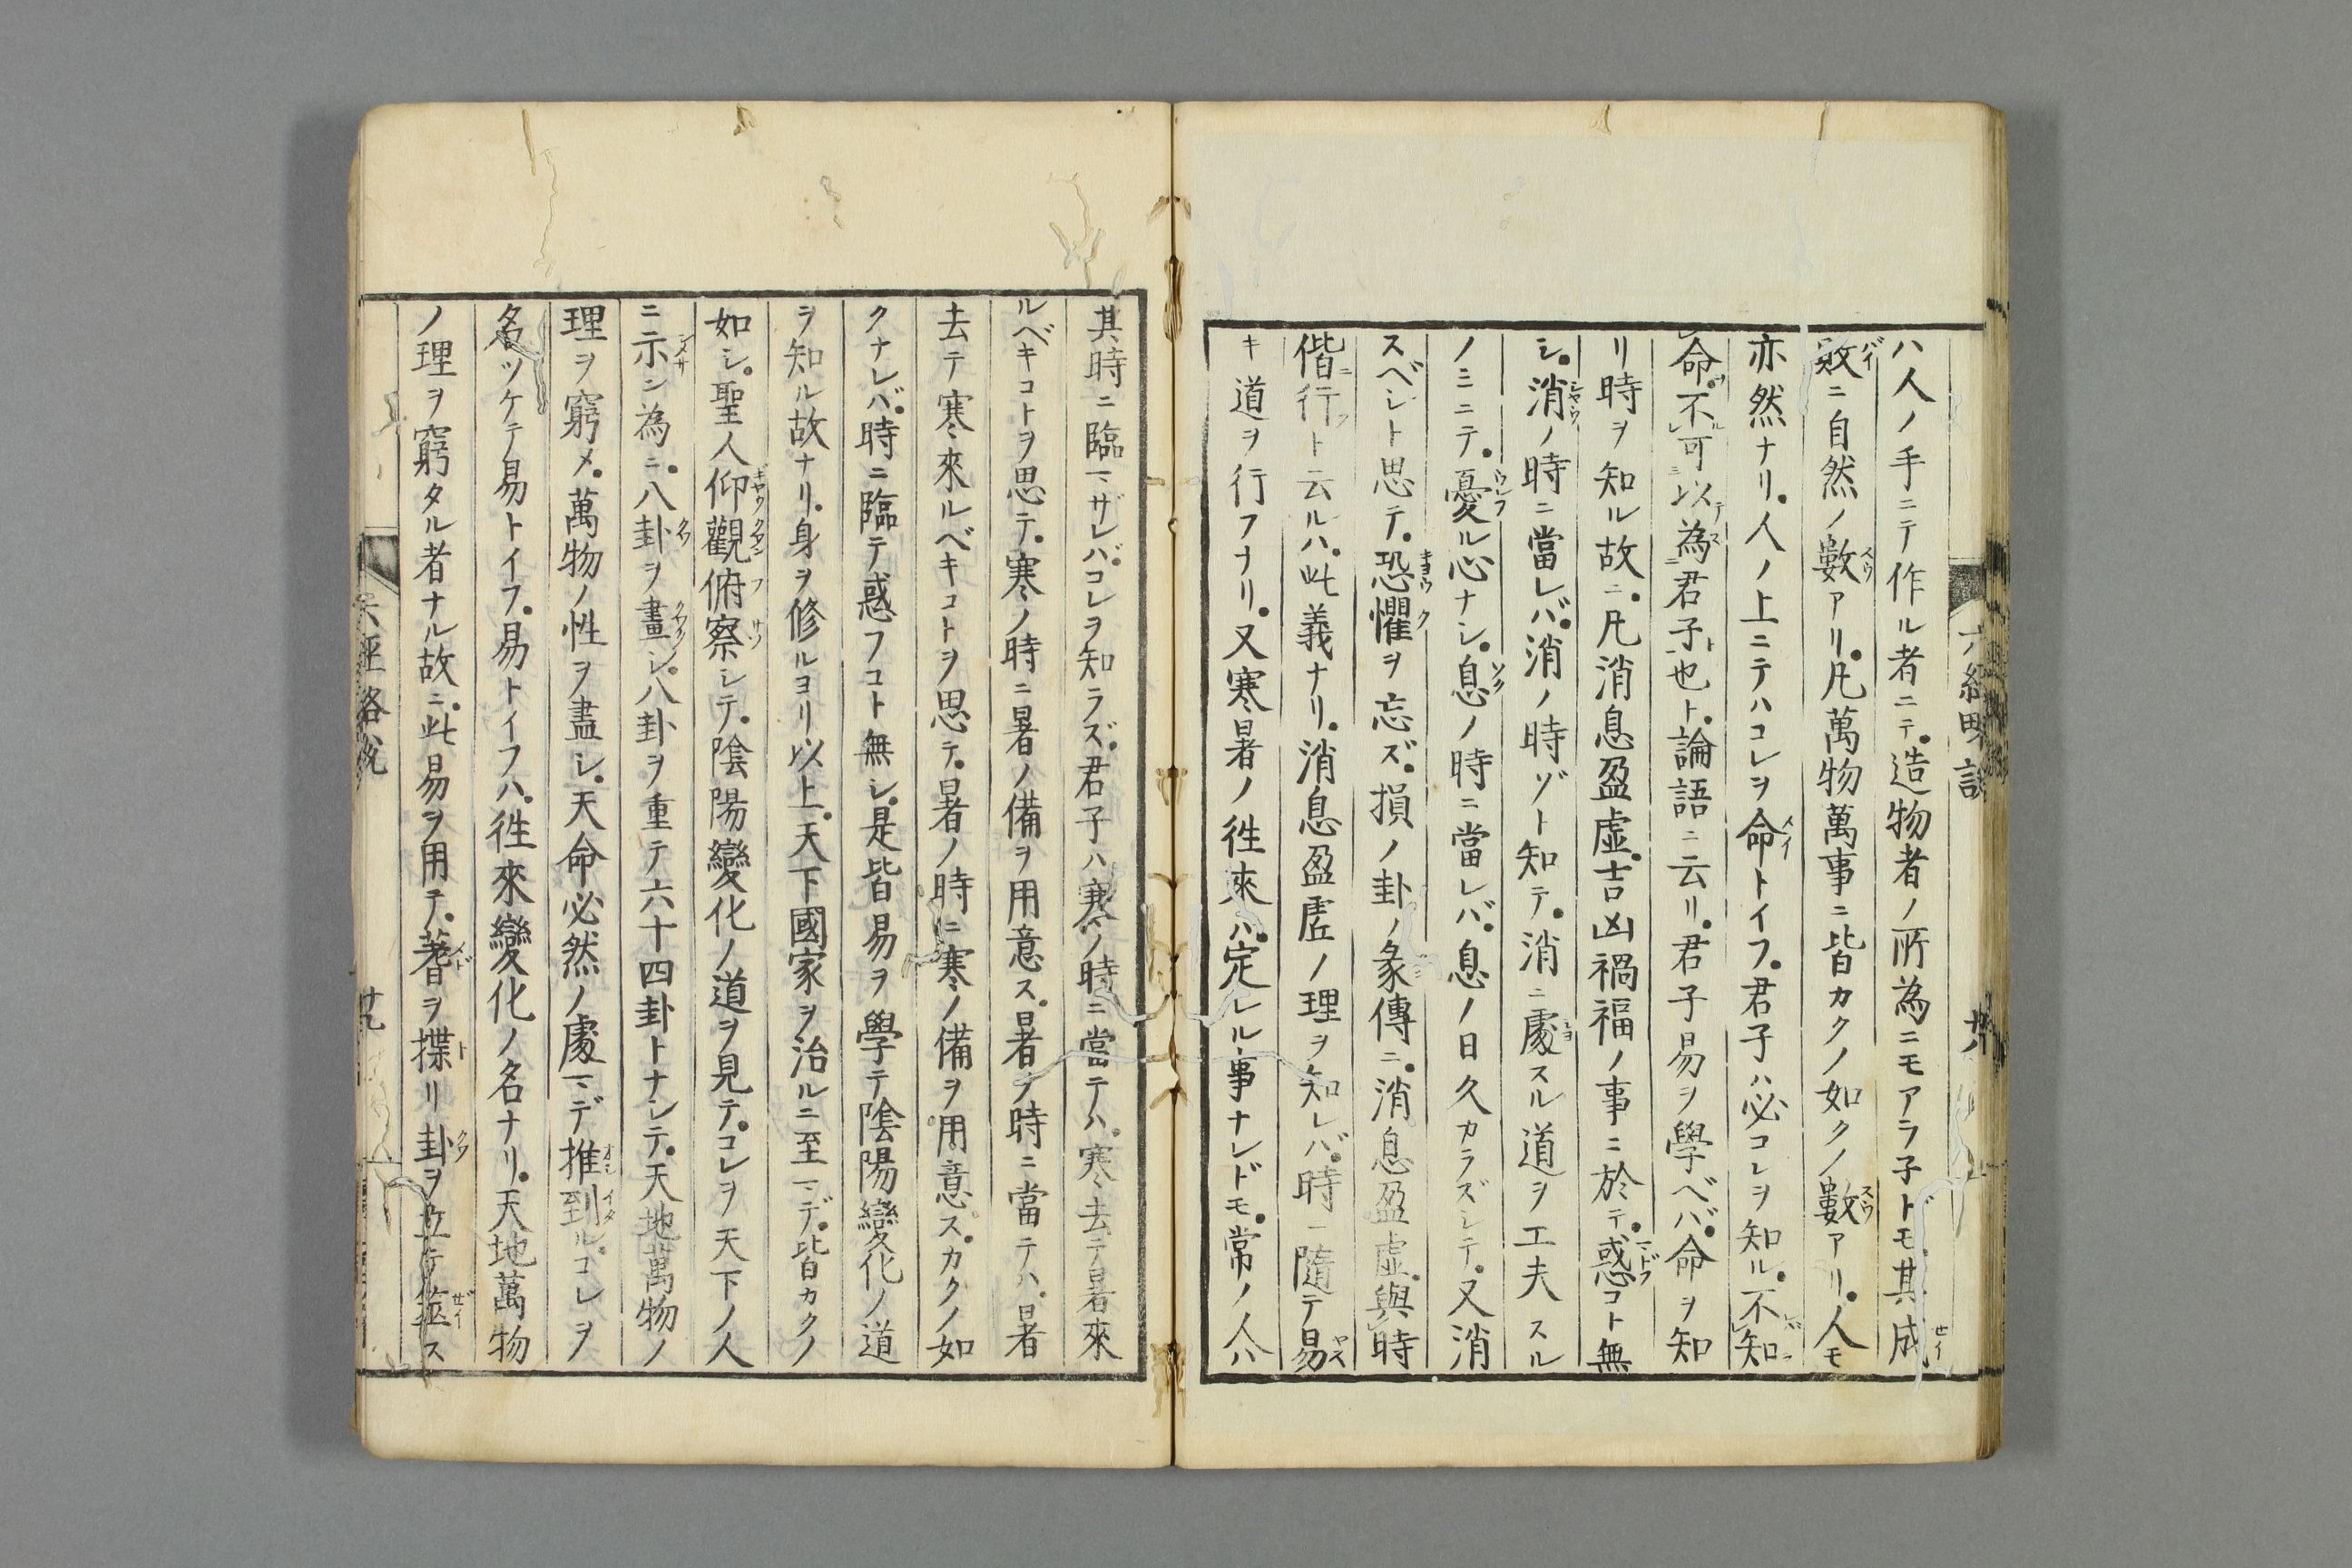 六經略說
ハ人ノ手ニテ作ル者ニテ。造物者ノ所為ニモアラ子ドモ。其成
敗ニ自然ノ數アリ。凡萬物萬事ニ皆カクノ如クノ數アリ。人モ
亦然ナリ。人ノ上ニテハコレヲ命トイフ。君子ハ必コレヲ知ル。不知
命。不可以為君子也ト。論語ニ云リ。君子易ヲ學ベバ。命ヲ知
リ時ヲ知ル故ニ。凡消息盈虛。吉凶禍福ノ事ニ於テ。惑コト無
シ。消ノ時ニ當レバ。消ノ時ゾト知テ。消ニ處スル道ヲ工夫スル
ノミニテ。憂ル心ナシ。息ノ時ニ當レバ。息ノ日久カラズシテ。又消
スベシト思テ。恐懼ヲ忘ズ。損ノ卦ノ彖傳ニ。消息盈虛。與時
偕行ト云ルハ。此義ナリ。消息盈虛ノ理ヲ知レバ。時ニ隨テ易
キ道ヲ行フナリ。又寒暑ノ徃來ハ。定レル事ナレドモ。常ノ人ハ
其時ニ臨マザレバ。コレヲ知ラズ。君子ハ寒ノ時ニ當テハ。寒去テ暑來
ルベキコトヲ思テ。寒ノ時ニ暑ノ備ヲ用意ス。暑ノ時ニ當テハ。暑
去テ寒來ルベキコトヲ思テ。暑ノ時ニ寒ノ備ヲ用意ス。カクノ如
クナレバ。時ニ臨テ惑フコト無シ。是皆易ヲ學テ陰陽變化ノ道
ヲ知ル故ナリ。身ヲ修ルヨリ以上。天下國家ヲ治ルニ至マデ。皆カクノ
如シ。聖人仰觀俯察シテ。陰陽變化ノ道ヲ見テ。コレヲ天下ノ人
ニ示ン為ニ。八卦ヲ畫シ。八卦ヲ重テ六十四卦トナシテ。天地萬物ノ
理ヲ窮メ。萬物ノ性ヲ盡シ。天命必然ノ處マデ推到ル。コレヲ
名ツケテ易トイフ。易トイフハ。徃來變化ノ名ナリ。天地萬物
ノ理ヲ窮タル者ナル故ニ。此易ヲ用テ。蓍ヲ揲リ卦ヲ立テ筮ス
六經略說
廿九